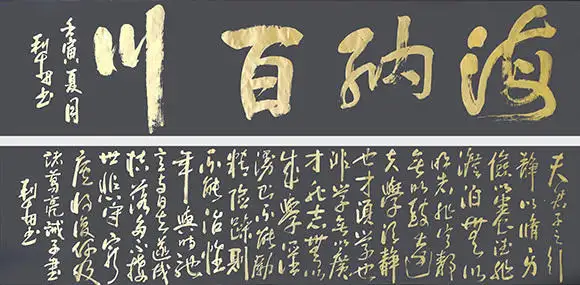 海纳百川
壬寅夏月
夫君子之行
静以修身
俭以养德非
澹泊無以
明志非宁静
無以致远
夫學须静
也才须学也
非学無以廣
才非志無以
成学淫
漫则不能励
精险躁则
不能治性
年與时驰
意与日去遂成
枯落多不接
世悲守穷
廬将復何及
諸葛亮誡子書